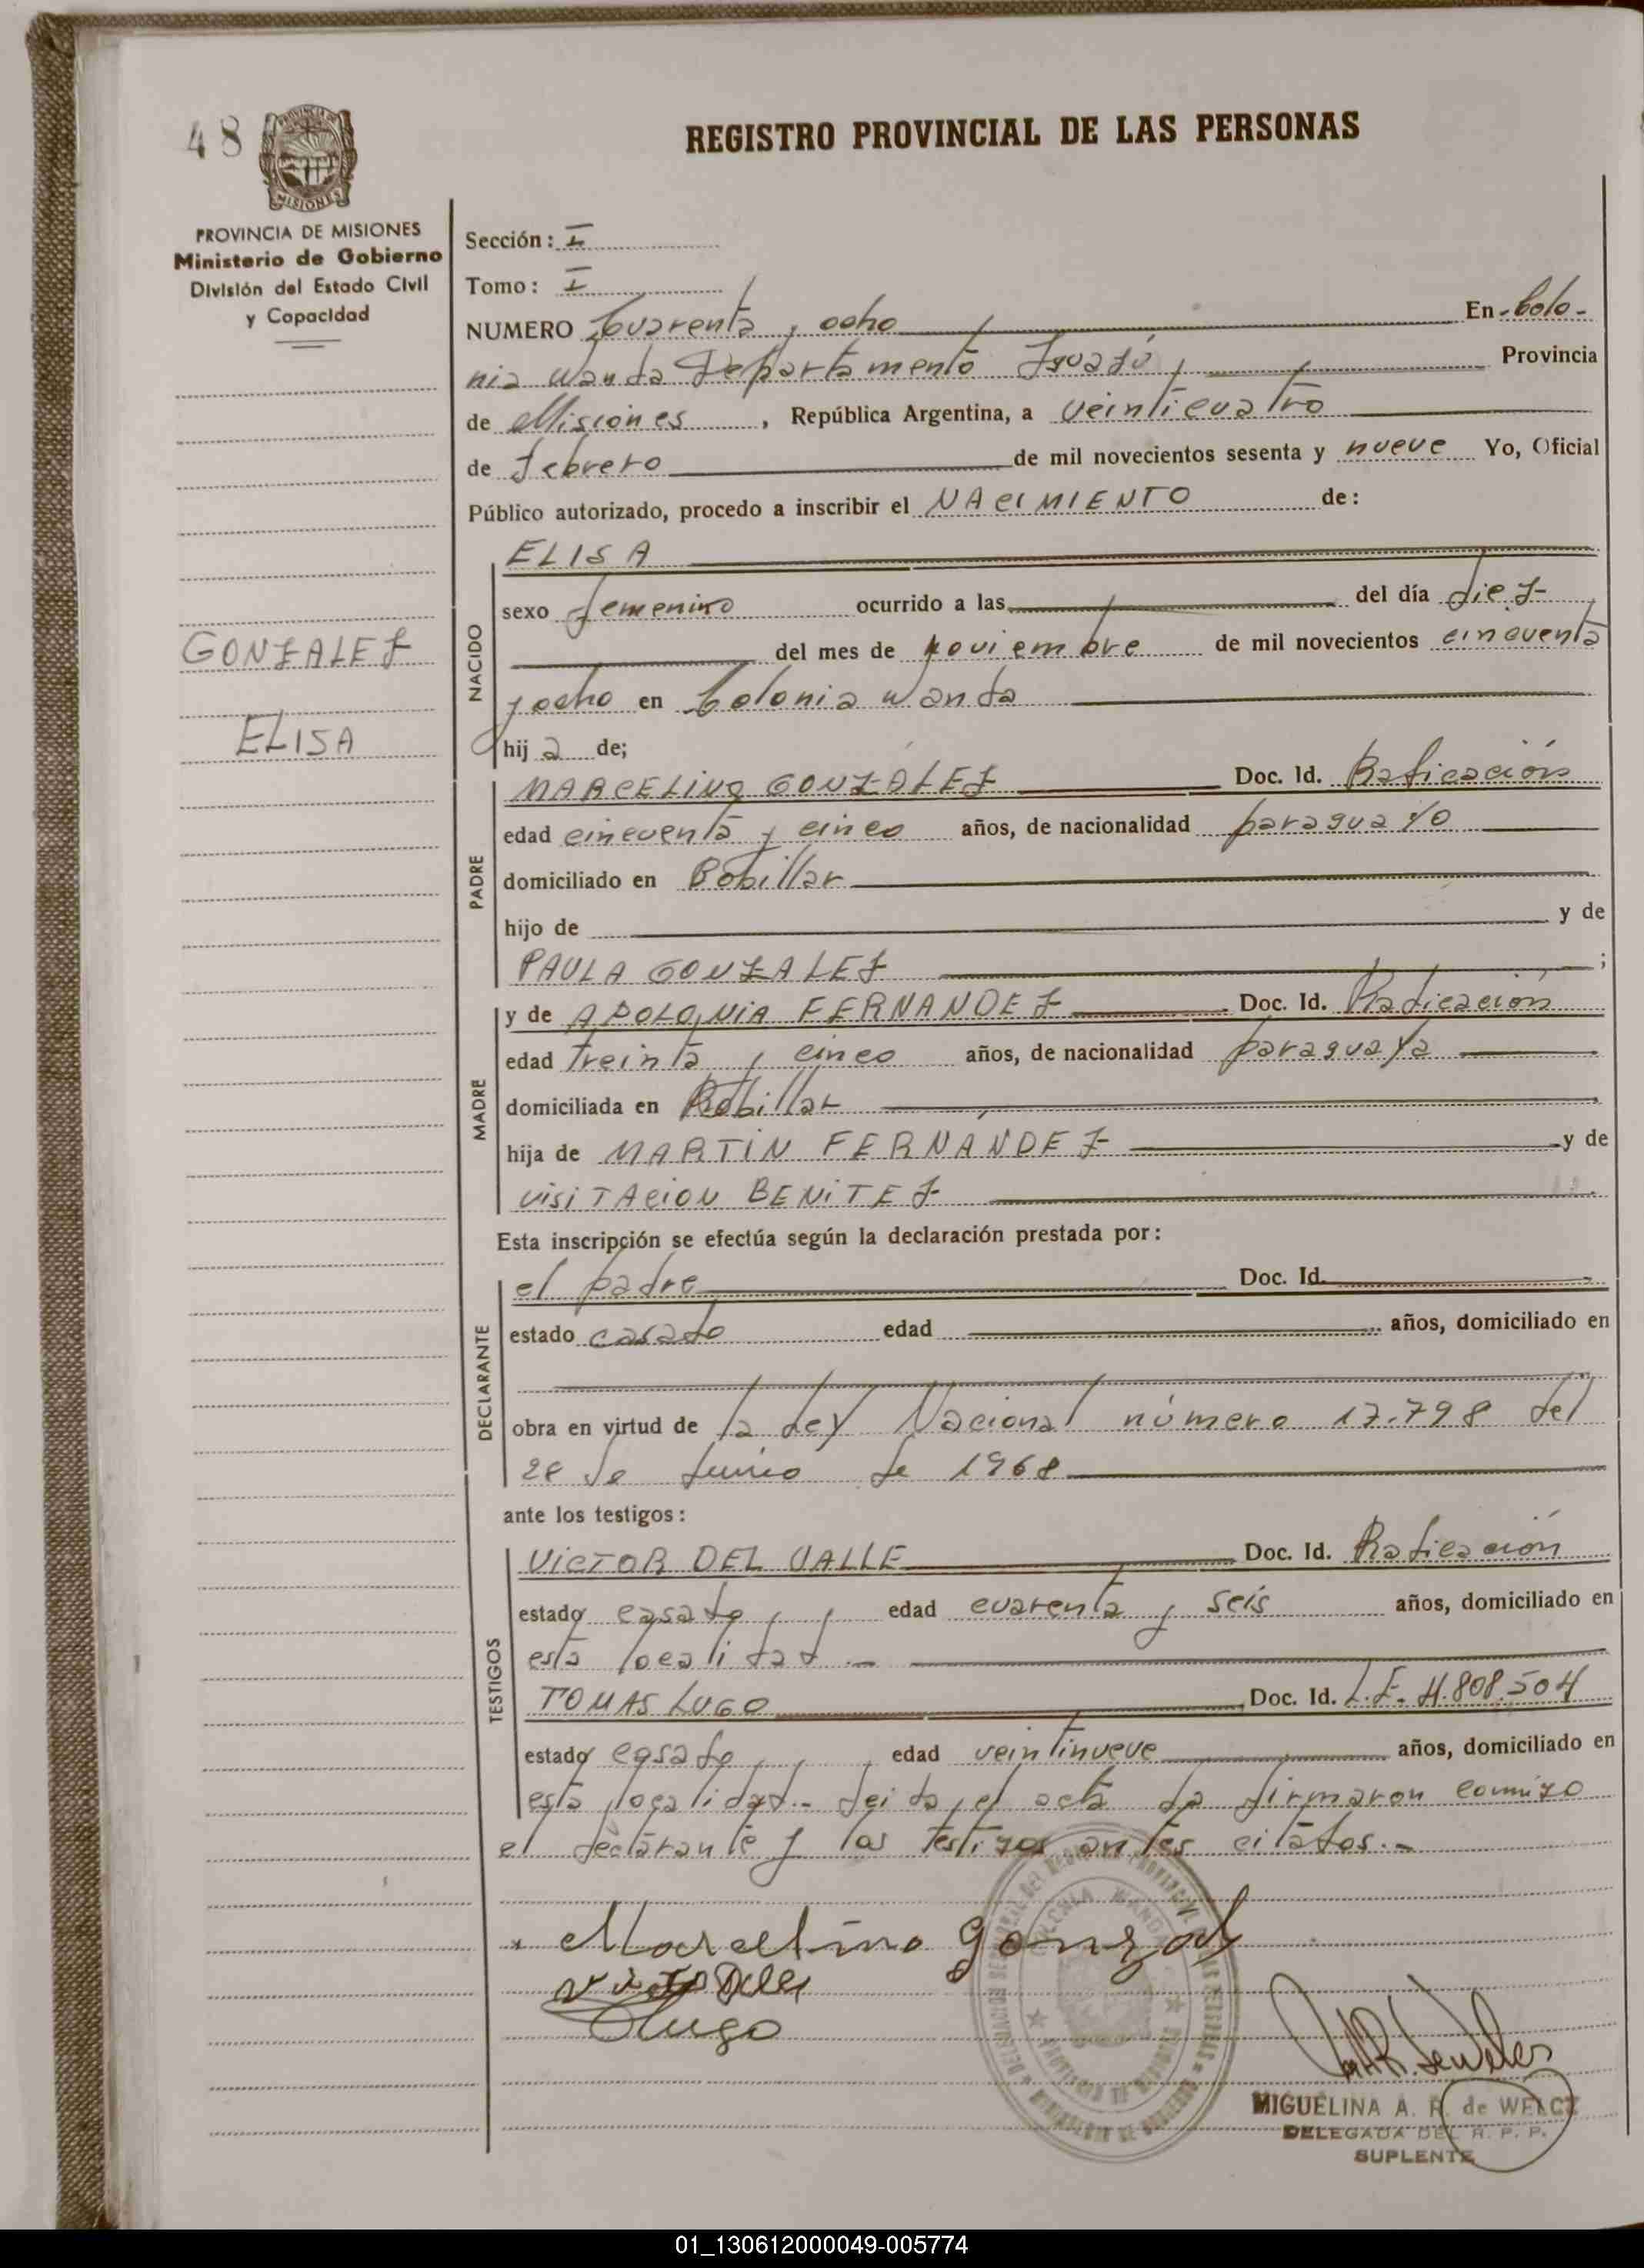 48
REGISTRO PROVINCIAL DE LAS PERSONAS
PROVINCIA DE MISIONES
Ministerio de Gobierno
División del Estado Civil
y Capacidad
GONZALEZ
ELISA
Sección: I
Tomo: I
NUMERO Cuarenta y ocho En Colo-
nia Wanda Departamento Iguazú, Provincia
de Misiones, República Argentina, a veinticuatro
de febrero de mil novecientos sesenta y nueve Yo, Oficial
Público autorizado, procedo a inscribir el NACIMIENTO de:
NACIDO
ELISA
sexo femenino ocurrido a las del día diez
del mes de noviembre de mil novecientos cincuenta
y ocho en Colonia Wanda
hij a de;
PADRE
MARCELINO GONZÁLEZ Doc. Id. Radicación
edad cincuenta y cinco años, de nacionalidad paraguayo
domiciliado en Bobillar
hijo de y de
PAULA GONZALEZ ;
MADRE
y de APOLONIA FERNANDEZ Doc. Id. Radicación
edad treinta y cinco años, de nacionalidad paraguaya
domiciliada en Bobillar
hija de MARTIN FERNÁNDEZ y de
VISITACION BENITEZ
Esta inscripción se efectúa según la declaración prestada por:
DECLARANTE
el padre Doc. Id.
estado casado edad años, domiciliado en
obra en virtud de la Ley Nacional número 17.798 del
28 de Junio de 1968
ante los testigos:
TESTIGOS
VICTOR DEL VALLE Doc. Id. Radicación
estado casado, edad cuarenta y seis años, domiciliado en
esta localidad.-
TOMAS LUGO Doc. Id. L.E. 4.808.504
estado casado, edad veintinueve años, domiciliado en
esta localidad.- Leida el acta la firmaron conmigo
el declarante y los testigos antes citados.-
Marcelino Gonzalez
Lugo
MIGUELINA A. R. de WELCZ
DELEGADA DEL R. P. P.
SUPLENTE
01_130612000049-005774